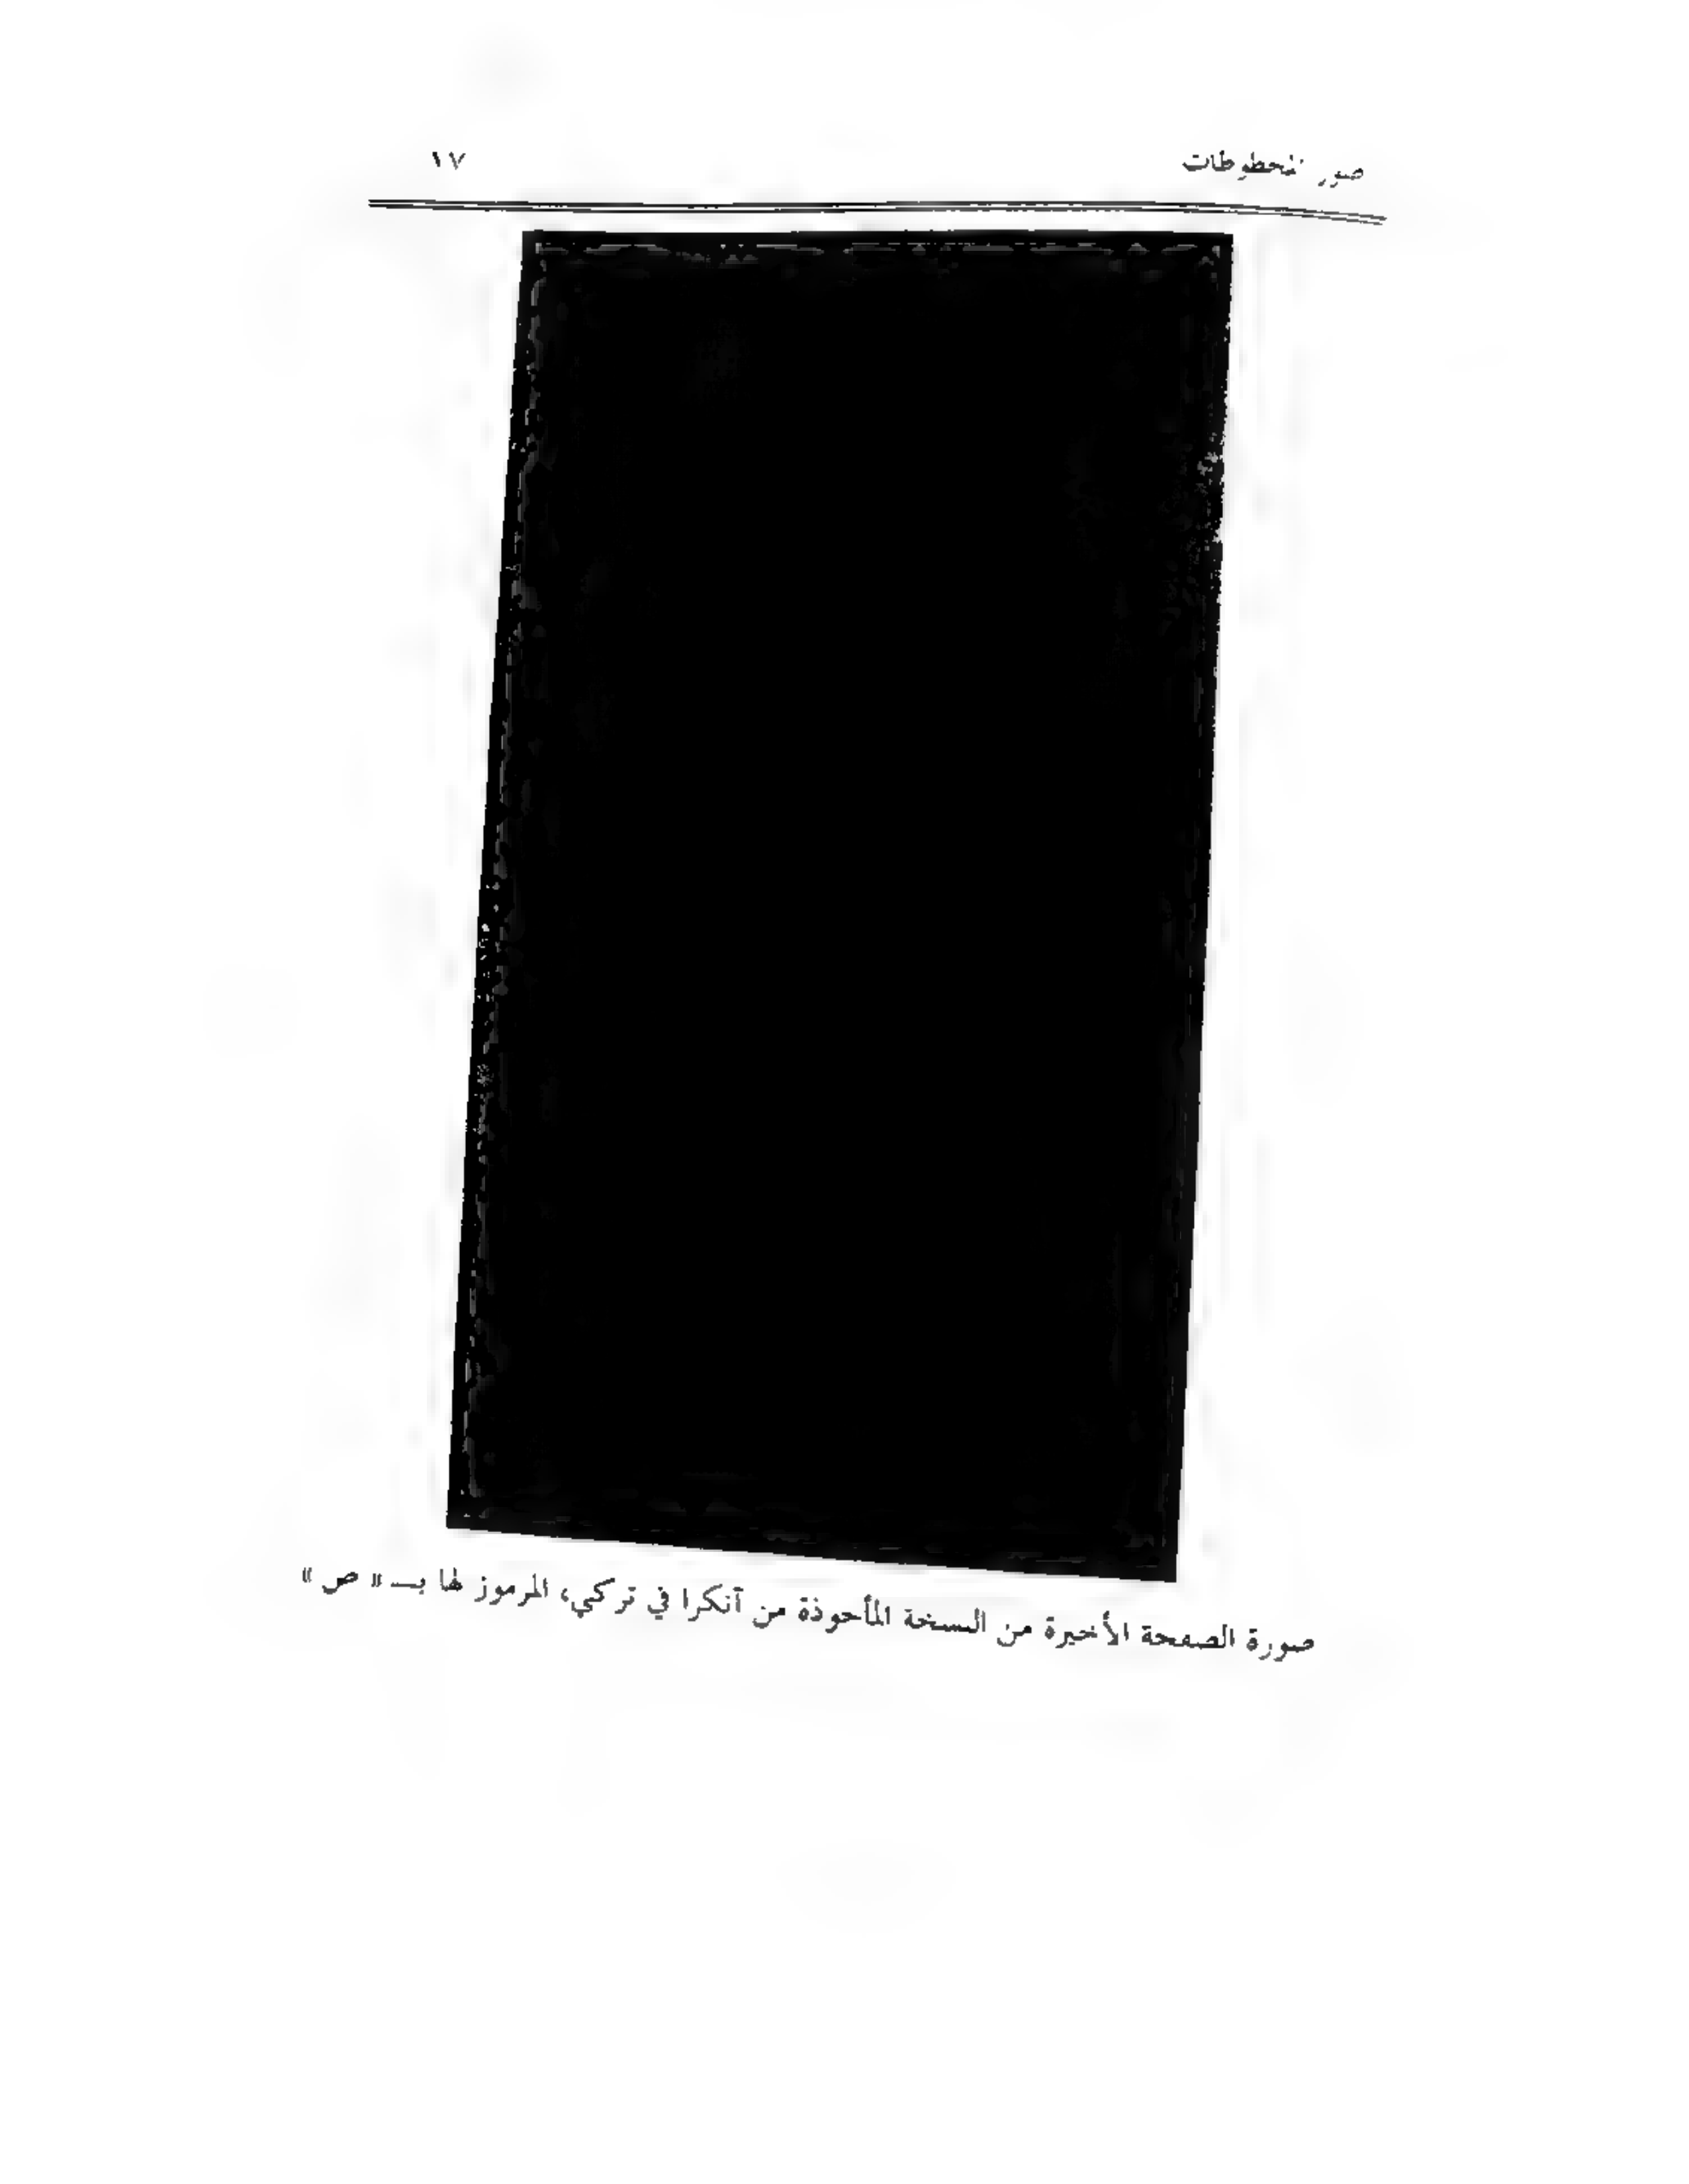 صور المخطوطات ١٧
صورة الصفحة الأخيرة من النسخة المأخوذة من آنكرا في تركي، المرموز لها بـ « ص »